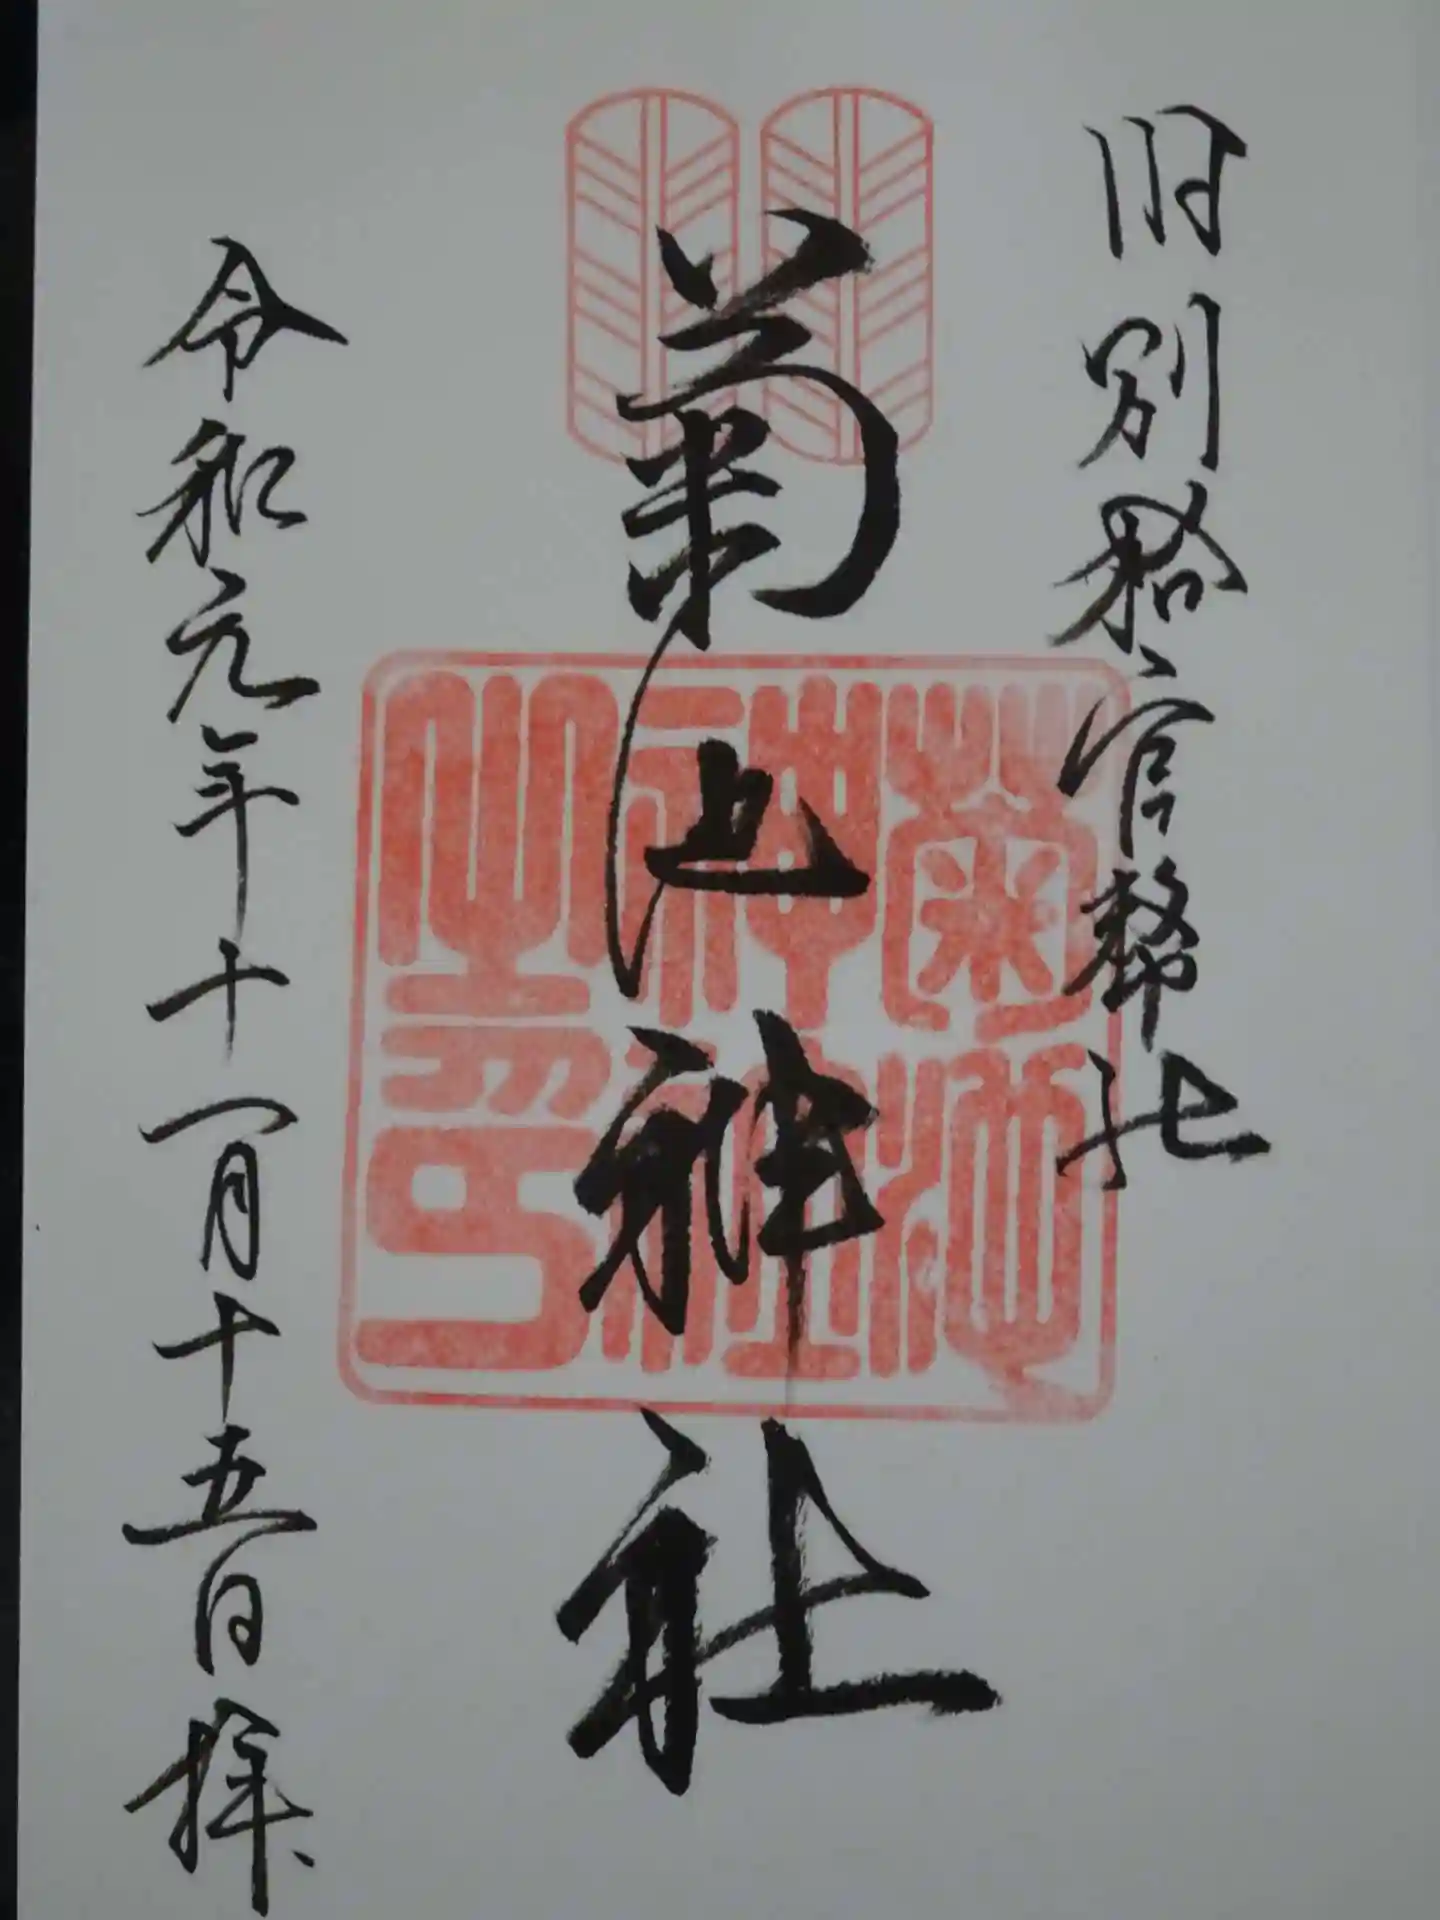 旧別格官幣社
菊池神社
令和元年十一月十五日拝
菊池
神社
之印